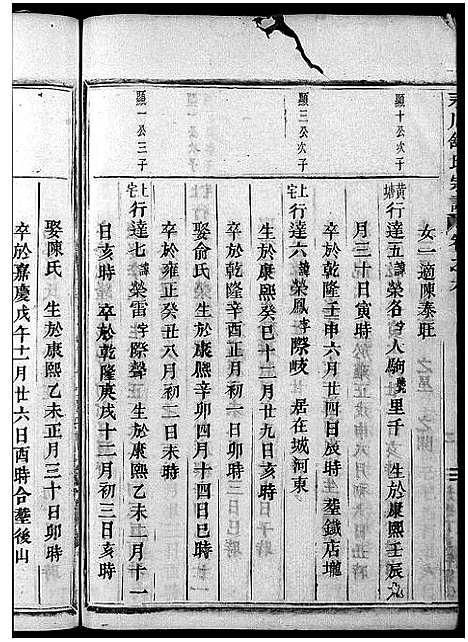 女二適陳泰旺
顯十公次子
黃塘行達五諱榮名字人駒號里千 生於康熙壬辰
月三十日寅時
卒於乾隆壬申六月廿四日辰時 葬鐵店壠
顯三公次子
上宅行達六諱榮鳳字際岐 居在城河東
生於康熙癸巳十二月廿九日亥時
卒於乾隆辛酉正月初一日卯時
娶俞氏 生於康熙辛卯四月十四日巳時
卒於雍正癸丑八月初二日未時
顯一公三子
上宅行達七諱榮雷字際聲 生於康熙乙未二月十一
日亥時 卒於乾隆庚戌十二月初三日亥時
娶陳氏 生於康熙乙未正月三十日卯時
卒於嘉慶戊午十二月廿六日酉時合葬後山